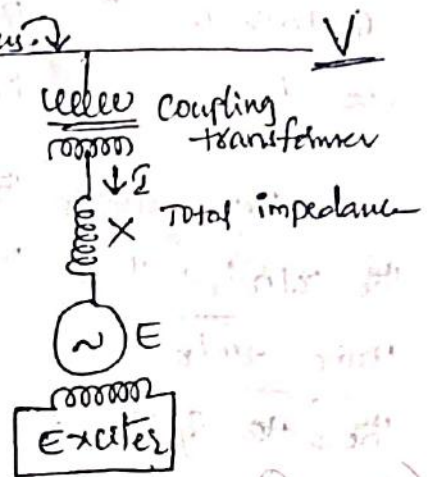 V
Coupling
transformer
I
X Total impedance
~ E
Exciter